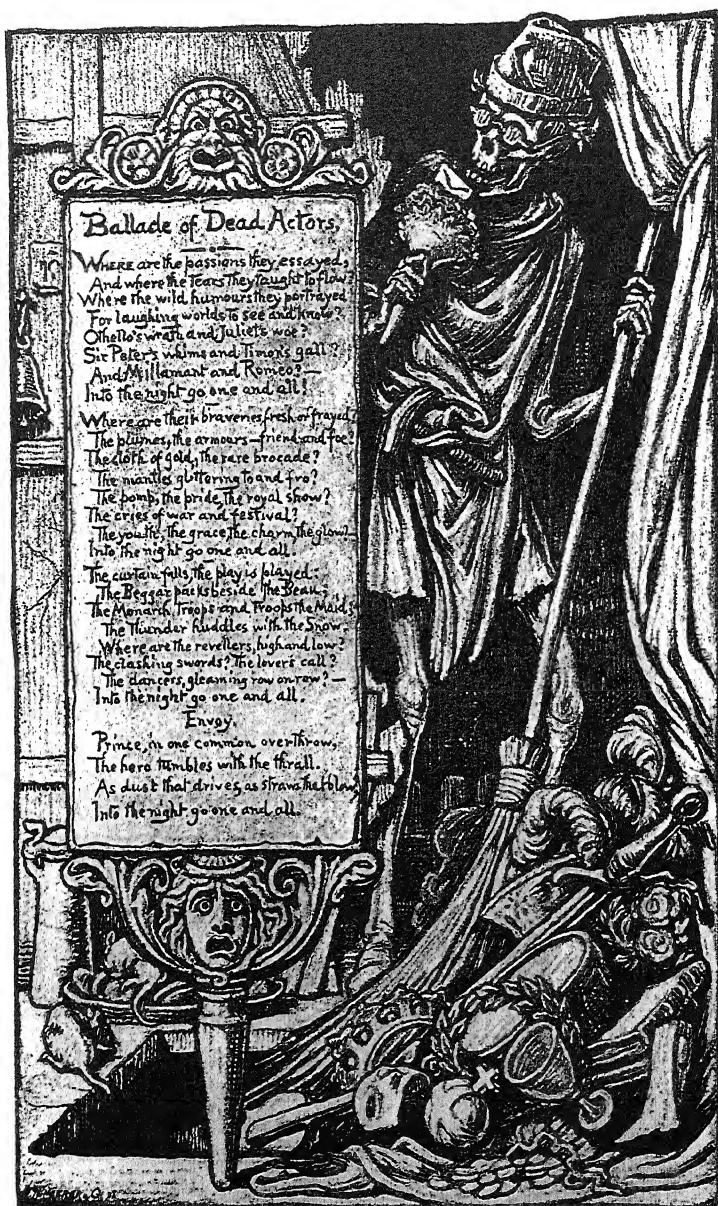 Ballade of Dead Actors,
WHERE are the passions they essayed,
And where the tears they taught to flow?
Where the wild humours they portrayed
For laughing worlds to see and know?
Othello's wrath and Juliet's woe?
Sir Peter's whims and Timon's gall?
And Millamant and Romeo?—
Into the night go one and all!
Where are their braveries, fresh or frayed?
The plumes, the armours—friend and foe?
The cloth of gold, the rare brocade?
The mantles glittering to and fro?
The pomp, the pride, the royal show?
The cries of war and festival?
The youth, the grace, the charm, the glow?—
Into the night go one and all.
The curtain falls, the play is played:
The Beggar packs beside the Beau;
The Monarch troops and troops the Maid;
The Thunder huddles with the Snow.
Where are the revellers, high and low?
The clashing swords? The lover's call?
The dancers, gleaming row on row?—
Into the night go one and all.
Envoy.
Prince, in one common overthrow,
The hero tumbles with the thrall.
As dust that drives, as straws that blow,
Into the night go one and all.